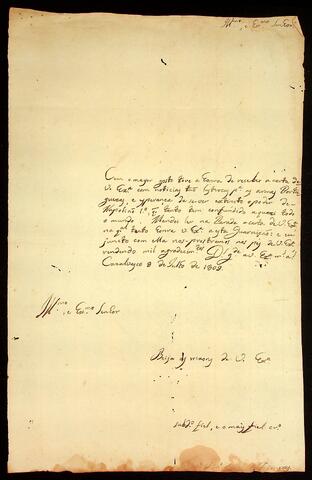 Illmo. e Exmo. Senhor
Com o mayor gosto tive a honra de receber a carta de
V. Exa. com noticias tão às armas Portu
guezas, e esperança de se ver extincto o poder de
Napolião 1.º, q' tanto tem confundido a quazi todo
o mundo. Mandei ler na Parada a carta de V. Exa.
na qal. tanto honra V. Exa. a esta Guarnição: e eu
junto com ella nos prostramos aos pés de V. Exa.
rendendo mil agradecimtos. D. g.de a V. Exa. m. a.
8 de Julho de 1809.
Illmo. e Exmo. Senhor
Beija as maons de V. Exa.
subdo. fiel, e o mais fiel cro.